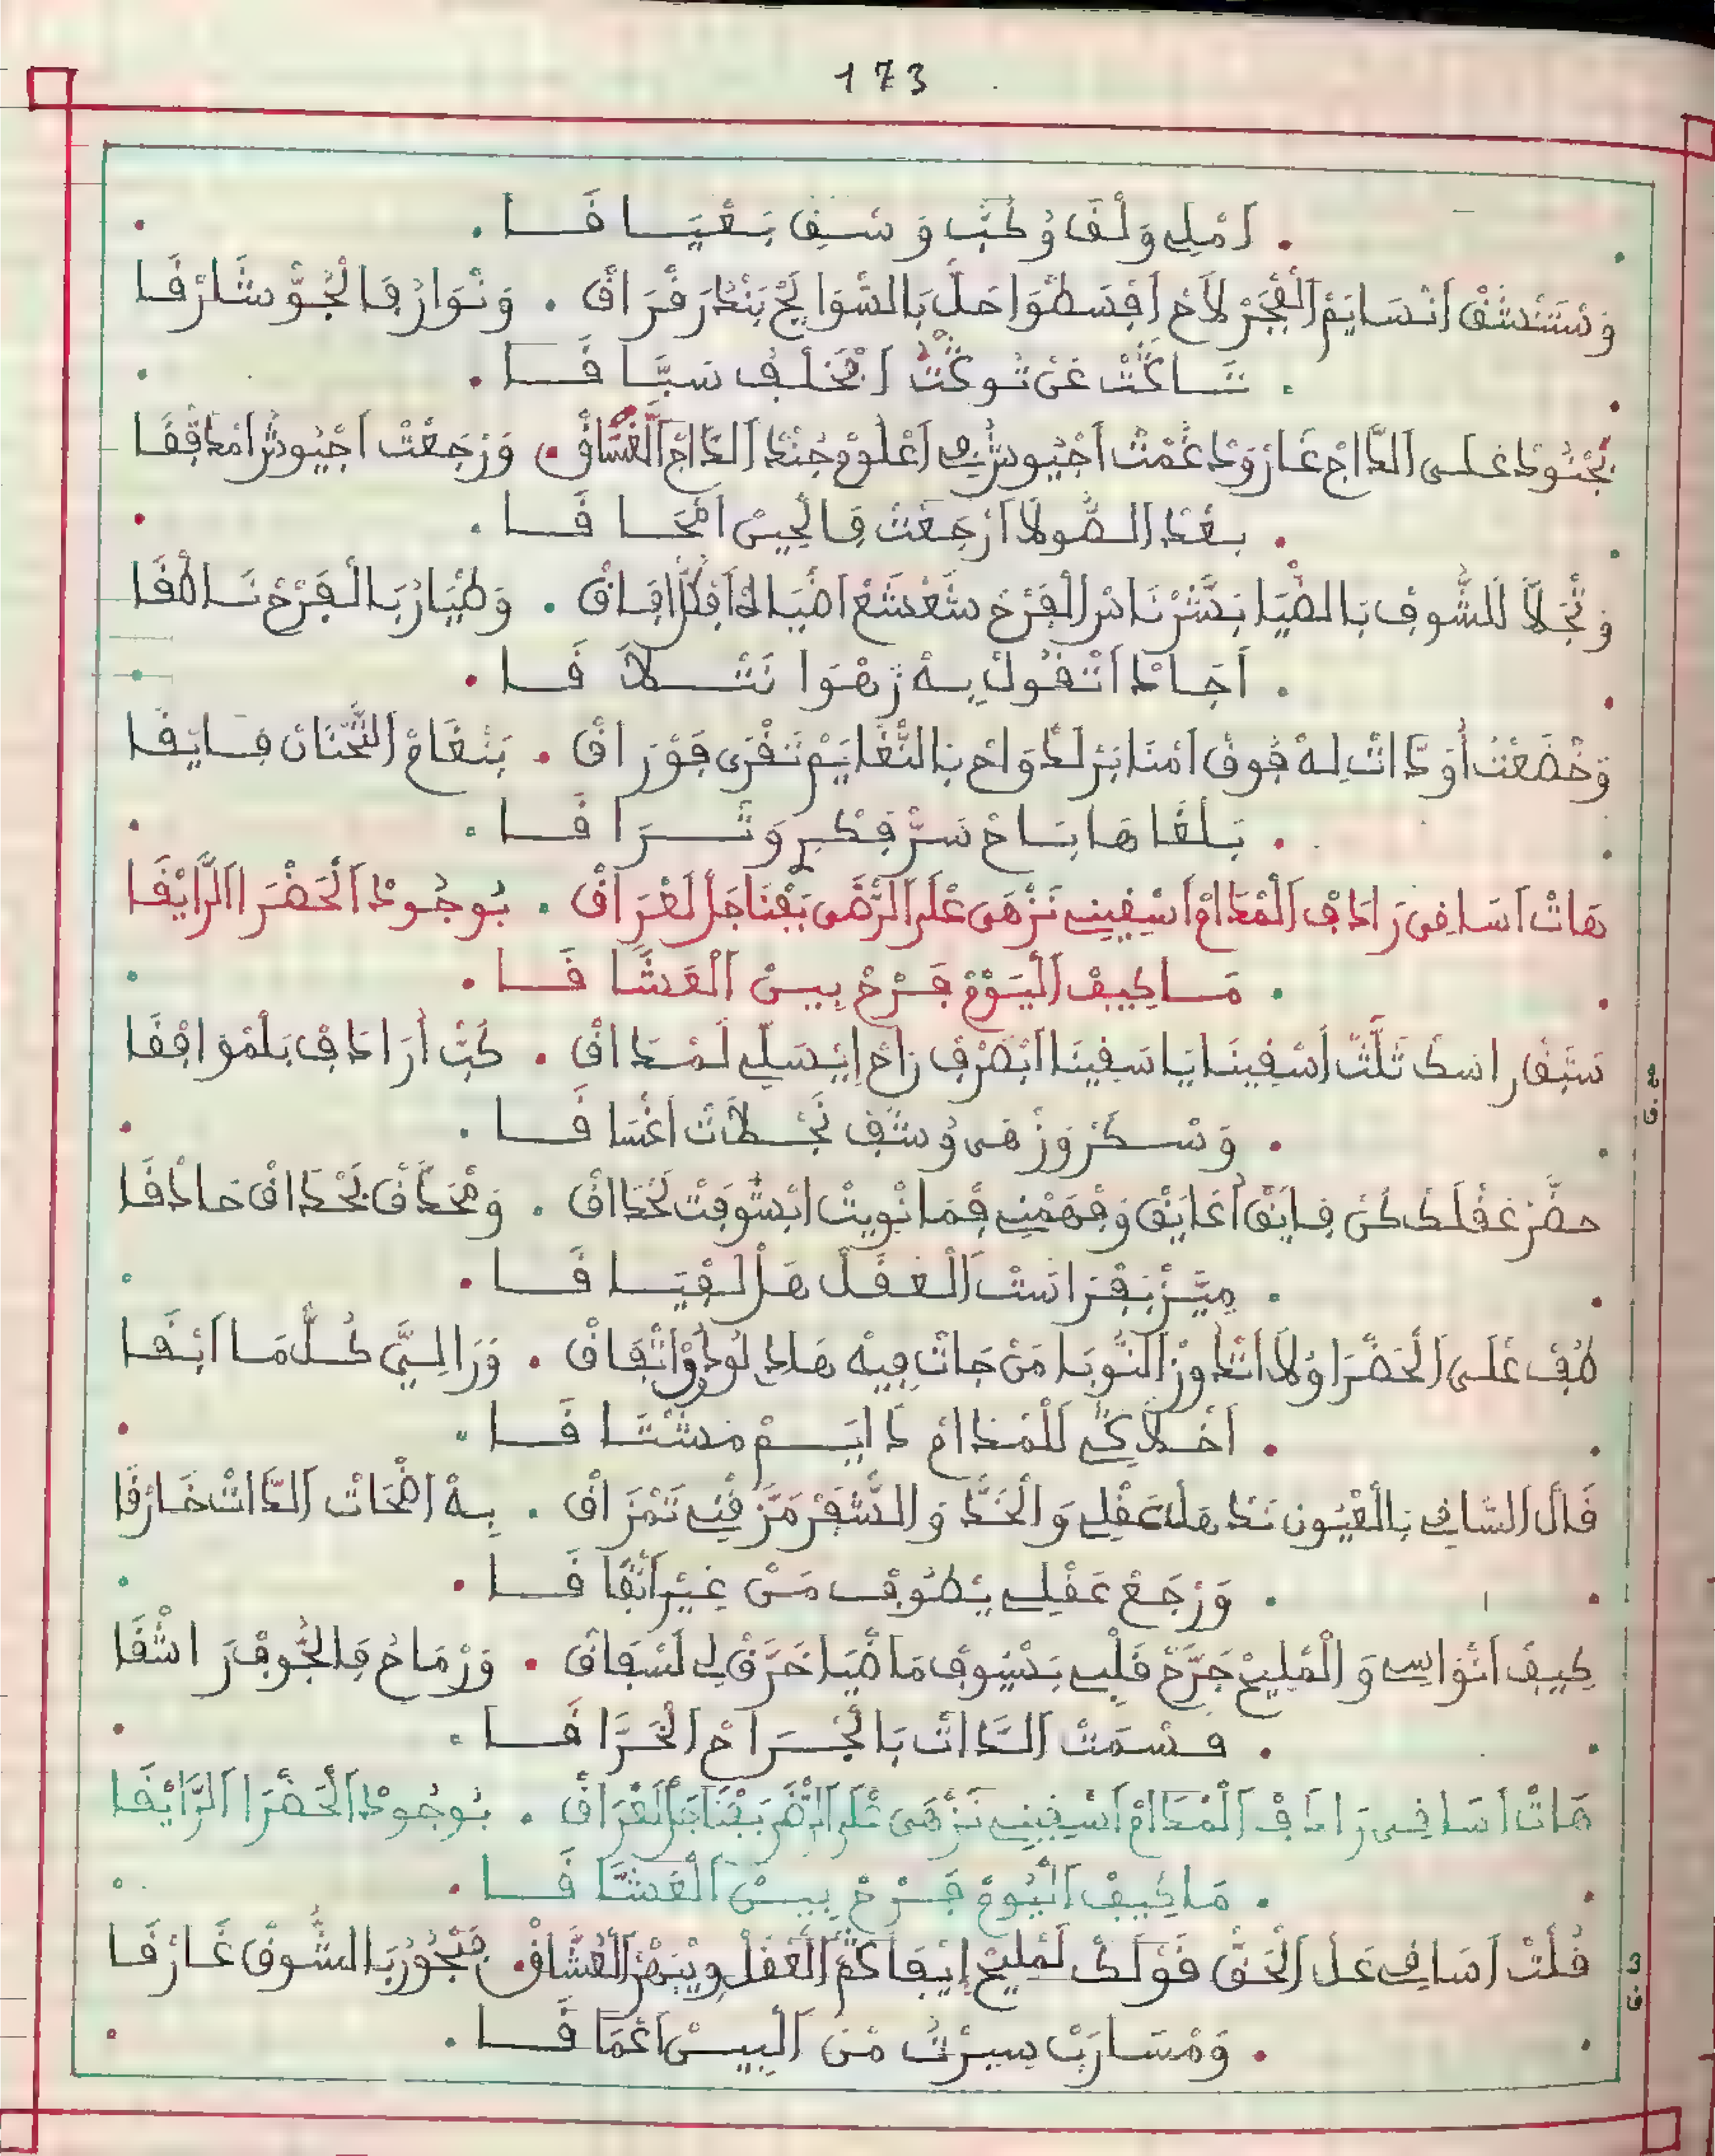 173
. اَمْلِي وَلْقَ وُكَبَّ وَسْقِ بَغْيَا قَا .
وَسْتَنْشَقْ اَنْسَايَمْ الْفْجَرْ لاَحْ اَفِسَطْوَا حَلَّ بَالشَّوَالِحْ بَنْدَرَقْرَاقْ . وَنْوَارْ فَالْجُوّْ شَارْقَا
بَجْنُودْ عَلَى الدَّاجْ غَارْ وَدْعَمْتْ اَجْيُوشْ اَعْلُومْ جُنْدْ الدَّاجْ الْغَسَّاقْ . وَرْجَعْتْ اَجْيُوشْ اَمْدَفْقَا
. بَعْدْ الصُّولاَ اَرْجَعْتْ فَالْحِينْ اَمْحَا قَا .
وَتْجَلاَّ لَلشُّوفْ بَالضْيَا بَشَّرْ نَاسْ الْفَرْحْ شَعْشَعْ اَضْيَاهْ اَفْكُلْ اَفَاقْ . وَطْيَارْ بَالْفَرْحْ نَاطْقَا
. اَجَادْ اَتْقُولْ بِهْ زَهْوَا تَتْلاَ قَا .
وَخْضَعْتْ اَوْدَّاتْ لِهْ فُوقْ اَمْنَابَرْ لَدْوَاحْ بَالنّْغَايَمْ تَقْرَى فَوْرَاقْ . بَنْغَامْ التَّحْنَانْ فَايْقَا
. بَلْغَاهَا بَاحْ سَرّْ فِكْرِ وَتْرَا قَا .
هَاتْ اَسَاقِي رَادَفْ الْمْدَامْ اَسْقِينِي نَزْهَى عْلَى الرّْضَى بَفْنَاجَلْ لَغْرَاقْ . بُوجُودْ الْحَضْرَا الرَّايْقَا
. مَا كِيفْ الْيُومْ فَرْحْ بِينْ الْعَشَّا قَا .
سَبَّقْ رَاسَكْ تَلَّتْ اَسْفِينَا يَا سَفِينَا اَبْصَرْفْ رَاحْ اِيْسَلِّي لَمْدَاقْ . كُبّْ اَرَادَفْ بَلْمْوَافْقَا
. وَسْكَرْ وَزْهَى وُسْقِ بَخْطَاتْ اَغْسَا قَا .
حضَّرْ عَقْلَكْ كُنْ فِايَقْ اَعَايَقْ وَفْهَمْنِي فْمَا نْوِيتْ اَبْشُوفْتْ لَحْدَاقْ . وَتْحَدَّقْ بَحْدَاقْ حَادْقَا
. مِيَّزْ بَفْرَاسْتْ الْعْقَلْ هَلْ لَفْيَا قَا .
طُفْ عْلَى الْحَضْرَا وُلاَ اَتْدَاوَزْ النُّوبَا مَنْ جَاتْ فِيهْ هَادِ لُودُّو اَتْفَاقْ . وَرَا لِيَّ كُلّْ مَا اَبْقَا
. اَخْلاَكِي لَلْمْدَامْ دَايَمْ مَشْتَا قَا .
قَالْ السَّاقِي بَالْعْيُونْ نَدْهَلْ عَقْلِي وَالْخَدّْ وَالشّْفَرْ مَزَّقْنِي تَمْزَاقْ . بِهْ اَضْحَاتْ الدَّاتْ خَارْقَا
. وَرْجَعْ عَقْلِي يْطُوفْ مَنْ غِيرْ اَتْقَا قَا .
كِيفْ اَنْوَاسِي وَالْمْلِيحْ جَرَّحْ قَلْبِي بَسْيُوفْ مَاضْيَا خَرَّقْ لِي لَسْفَاقْ . وَرْمَاحْ فَالْجُوفْ رَاشْقَا
. قسْمَتْ الدَّاتْ بَالْجْرَاحْ الْخَرَّا قَا .
هَاتْ اَسَاقِي رَادَفْ الْمْدَامْ اَسْقِينِي نَزْهَى عْلَى الرّْضَى بَفْنَاجَلْ لَغْرَاقْ . بُوجُودْ الْحَضْرَا الرَّايْقَا
. مَا كِيفْ الْيُومْ فَرْحْ بِينْ الْعَشَّا قَا .
قُلْتْ اَسَاقِي عَلْ الْحَقّْ قَوْلَكْ لَمْلِيحْ اِيْفَاكَمْ الْعْقَلْ وِيْبَهَرْ الْعُشَّاقْ . فَبْحُورْ بَالشُّوقْ غَارْقَا
. وَمْسَارَبْ سِيرْتُ مْنْ الْبِينْ اَعْمَا قَا .